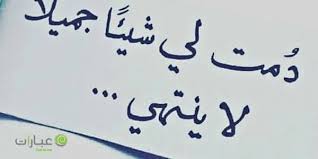 دُمت لي شيئًا جميلًا
لا ينتهي ...
عبارات